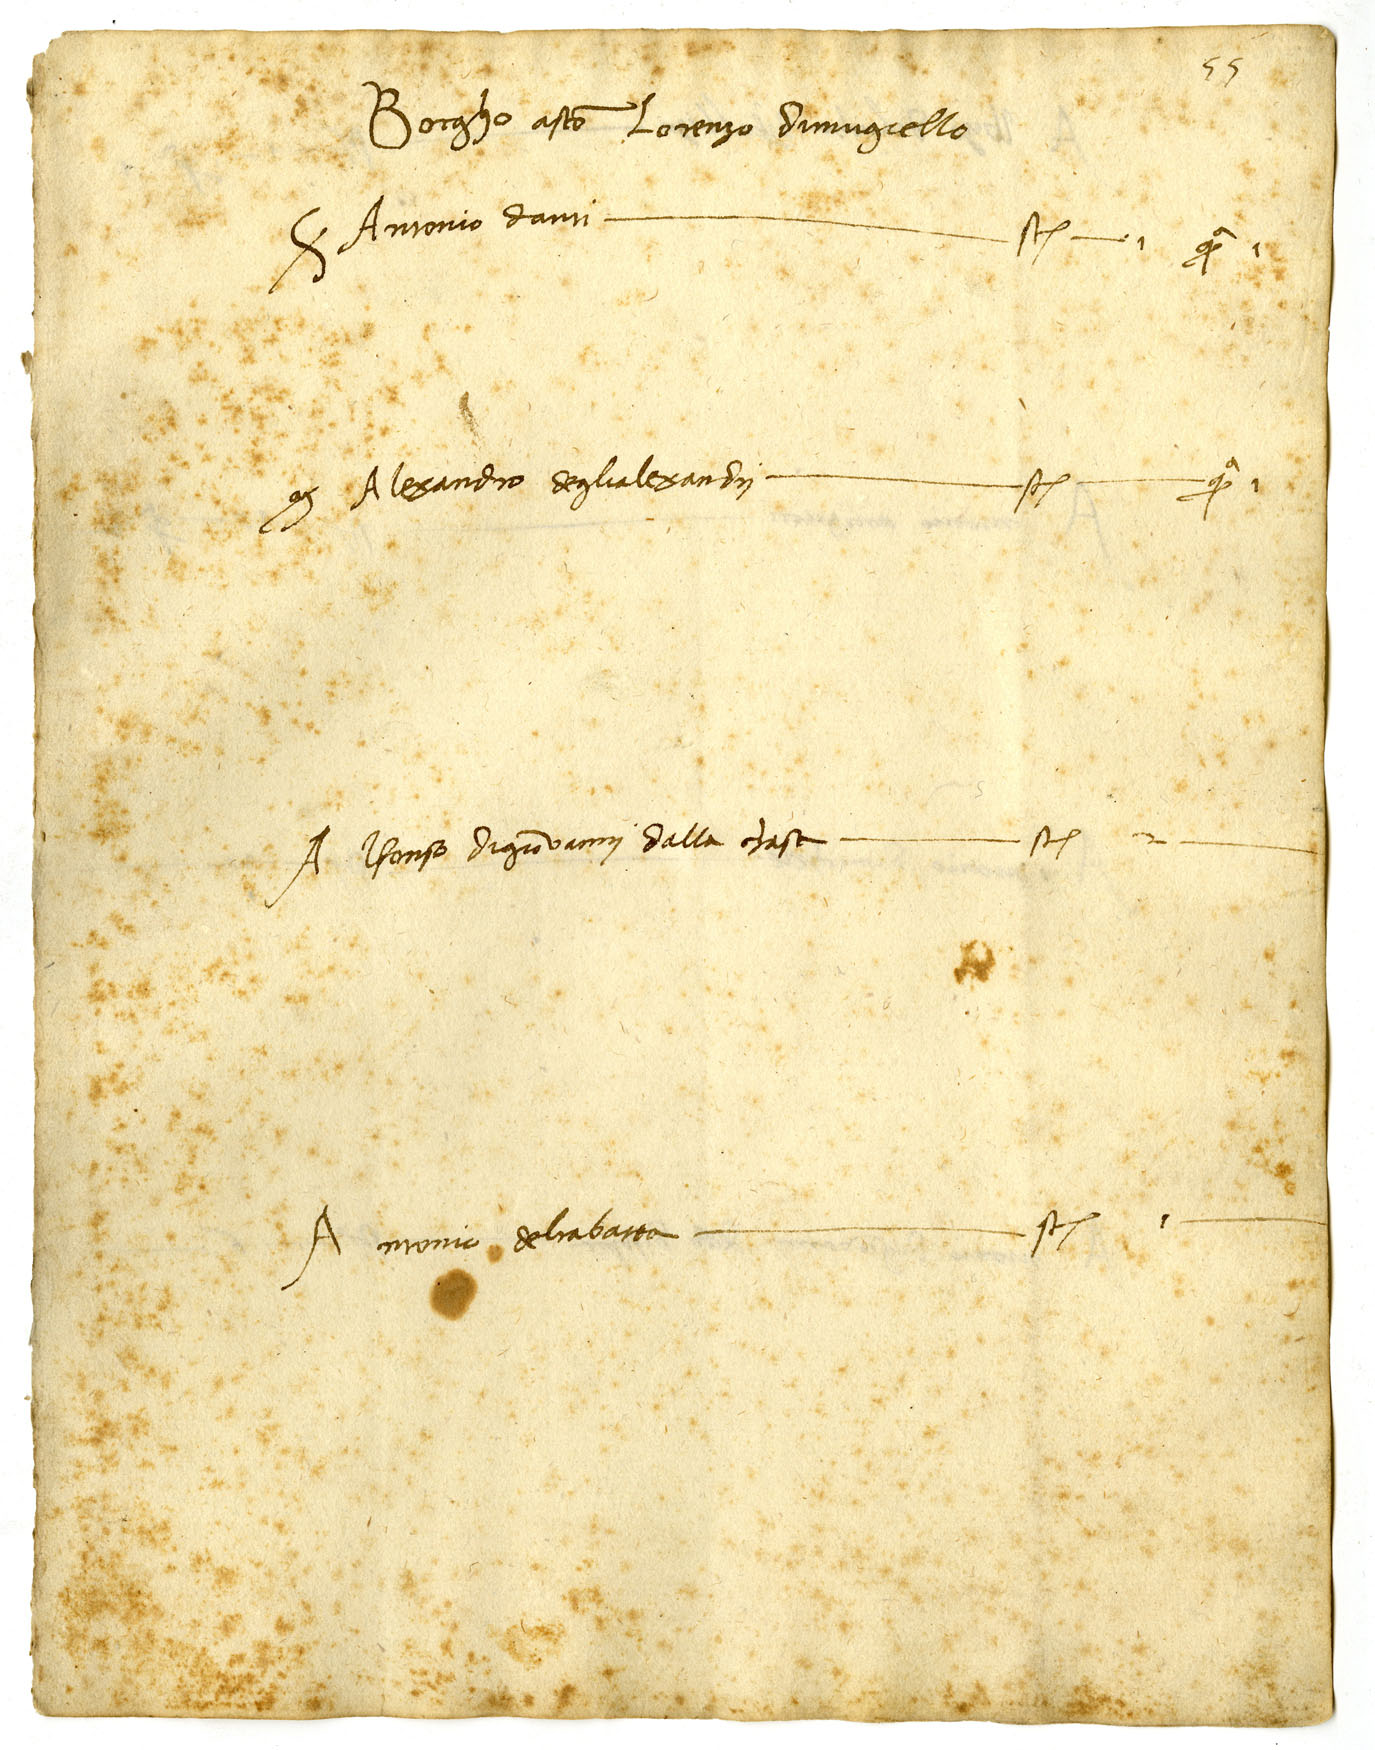 55
Borgho asto Lorenzo dimugiello
Antonio danti st 1 q.a 1
Alexandro deglialexandrj st q.a 1
Alfonso digiovannj dalla chasa st 2
Antonio dellabatta st 1